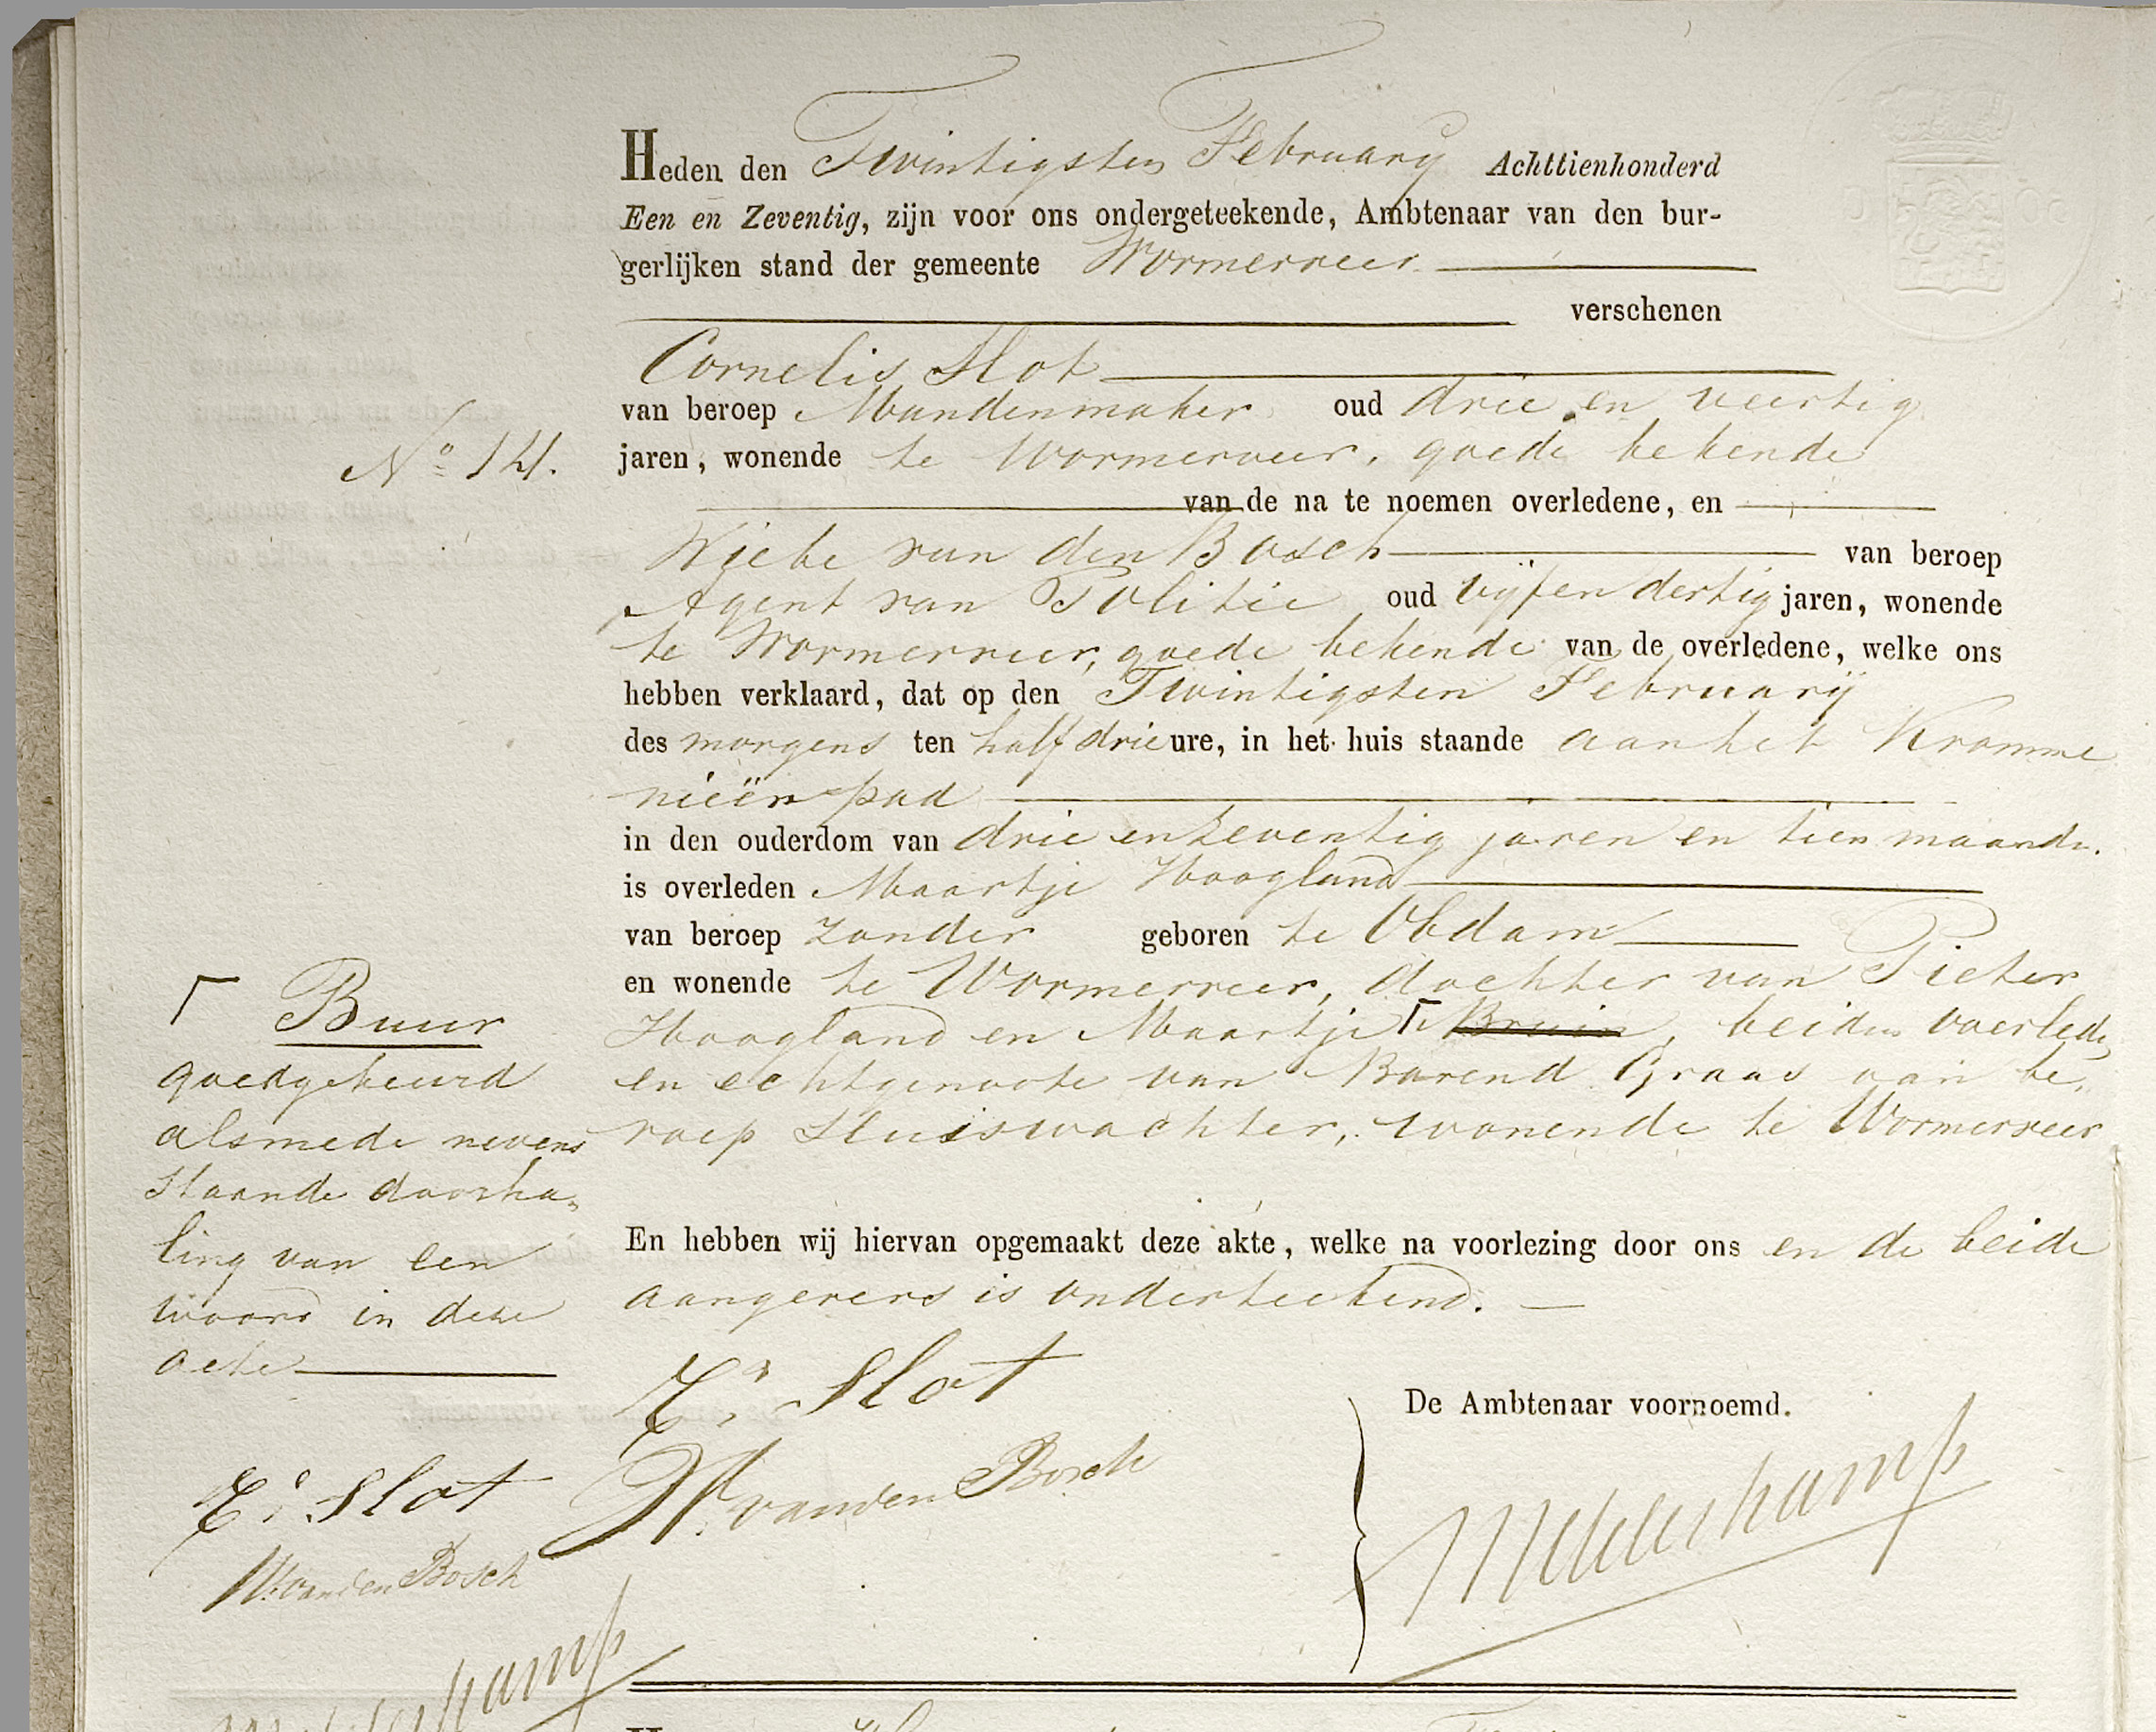 Heden den Twintigsten February Achttienhonderd
Een en Zeventig, zijn voor ons ondergeteekende, Ambtenaar van den bur-
gerlijken stand der gemeente Wormerveer
verschenen
Cornelis Slot
van beroep Mandenmaker oud drie en veertig
No 14.
jaren, wonende te Wormerveer, goede bekende
van de na te noemen overledene, en
Wiebe van den Bosch van beroep
Agent van Politie oud vijf en dertig jaren, wonende
te Wormerveer, goede bekende van de overledene, welke ons
hebben verklaard, dat op den Twintigsten Februarij
des morgens ten half drie ure, in het huis staande aan het Kromme
nieër pad
in den ouderdom van drie en zeventig jaren en tien maande.
is overleden Maartje Hoogland
van beroep zonder geboren te Obdam
en wonende te Wormerveer, dochter van Pieter
Hoogland en Maartje Γ Bruin, beiden overlede,
en echtgenoote van Barend Graas van be,
roep Sluiswachter, wonende te Wormerveer
Γ Buur
goedgekeurd
alsmede nevens
staande doorha,
ling van een
woord in deze
acte
En hebben wij hiervan opgemaakt deze akte, welke na voorlezing door ons en de beide
aangevers is onderteekend.
Cs Slot
De Ambtenaar voornoemd.
W. van den Bosch
Cs Slot
W. van den Bosch